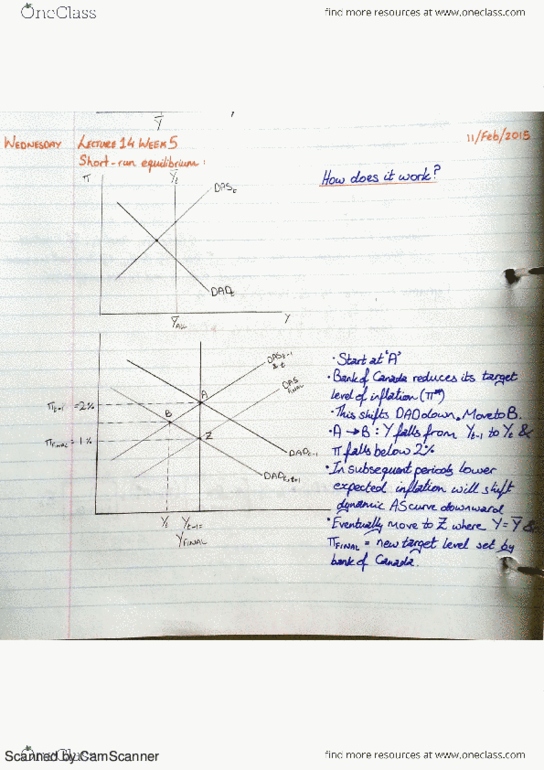 OneClass
find more resources at www.oneclass.com
Y̅
WEDNESDAY
LECTURE 14 WEEK 5
11/Feb/2015
Short-run equilibrium:
How does it work?
π
Y̅t
DASt
DADt
Y̅ALL
Y
DASt-1
& t
DAS
FINAL
πt-1 = 2%
A
B
πFINAL = 1%
Z
DADt-1
DADt,t+1
Yt
Yt-1=
YFINAL
• Start at 'A'
• Bank of Canada reduces its target
level of inflation (π*)
• This shifts DAD down. Move to B.
• A → B: Y falls from Yt-1 to Yt &
π falls below 2%
• In subsequent periods, lower
expected inflation will shift
dynamic AS curve downward
• Eventually move to Z where Y = Y̅ &
πFINAL = new target level set by
bank of Canada.
Scanned by CamScanner
OneClass
find more resources at www.oneclass.com